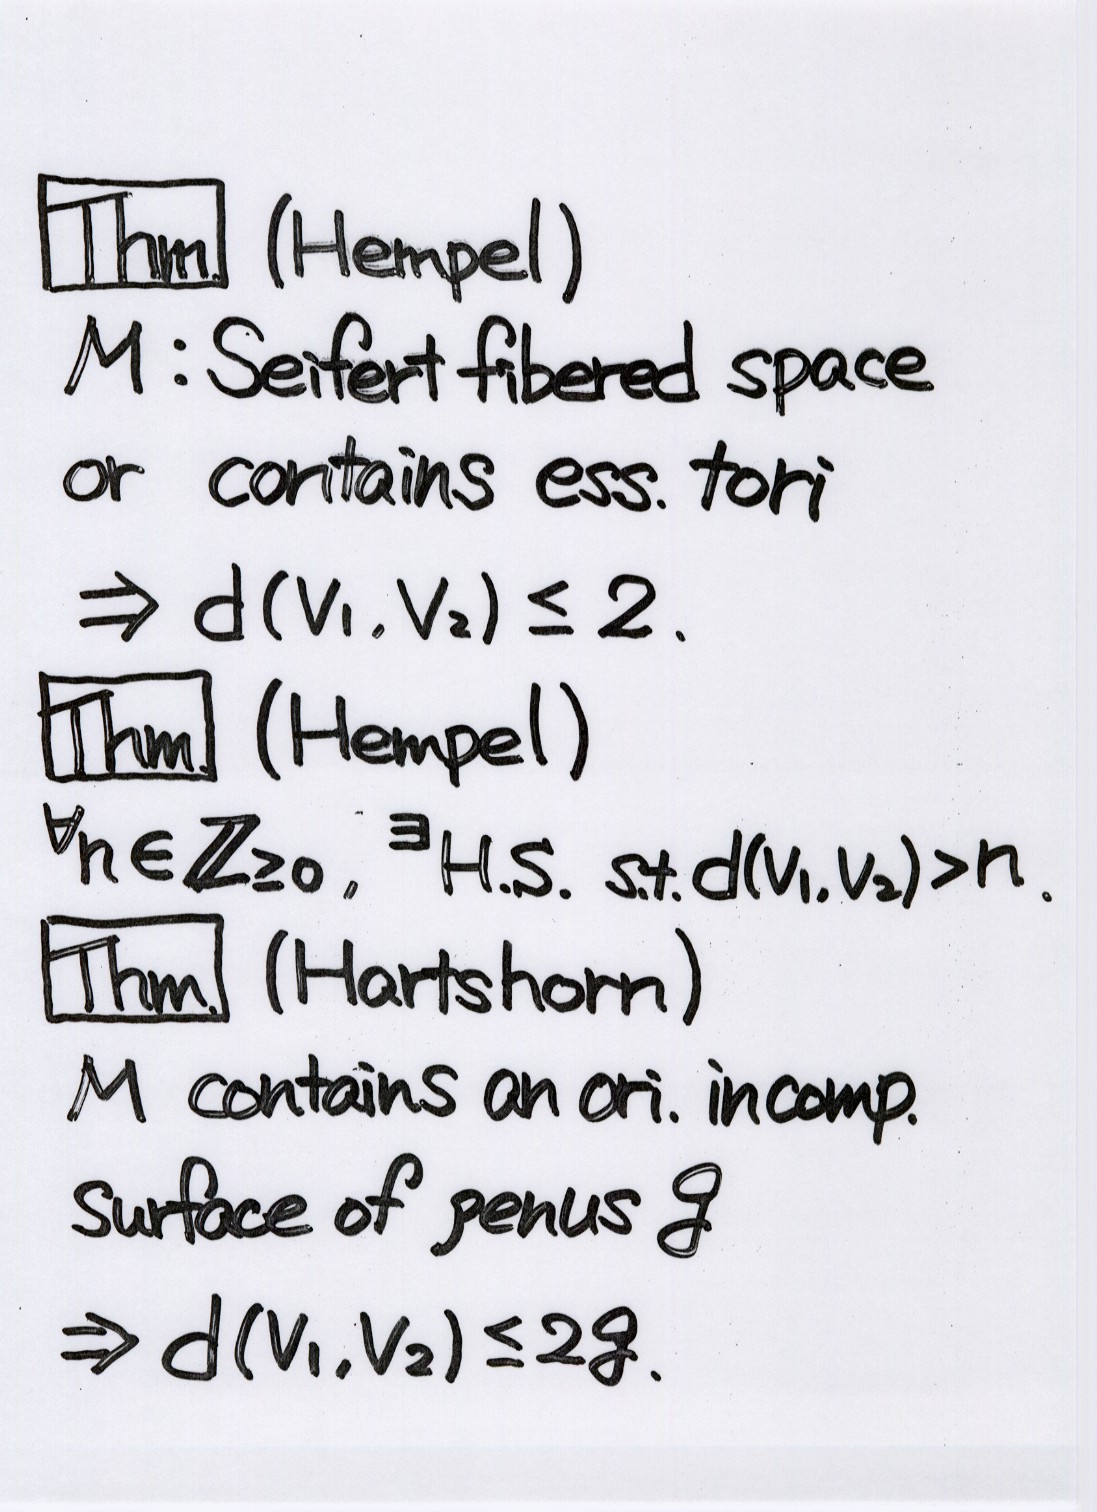 Thm. (Hempel)
M : Seifert fibered space
or contains ess. tori
⇒ d(V₁, V₂) ≤ 2.
Thm. (Hempel)
∀n∈ℤ≥0, ∃H.S. s.t. d(V₁, V₂)>n.
Thm. (Hartshorn)
M contains an ori. incomp.
surface of genus g
⇒ d(V₁, V₂) ≤ 2g.